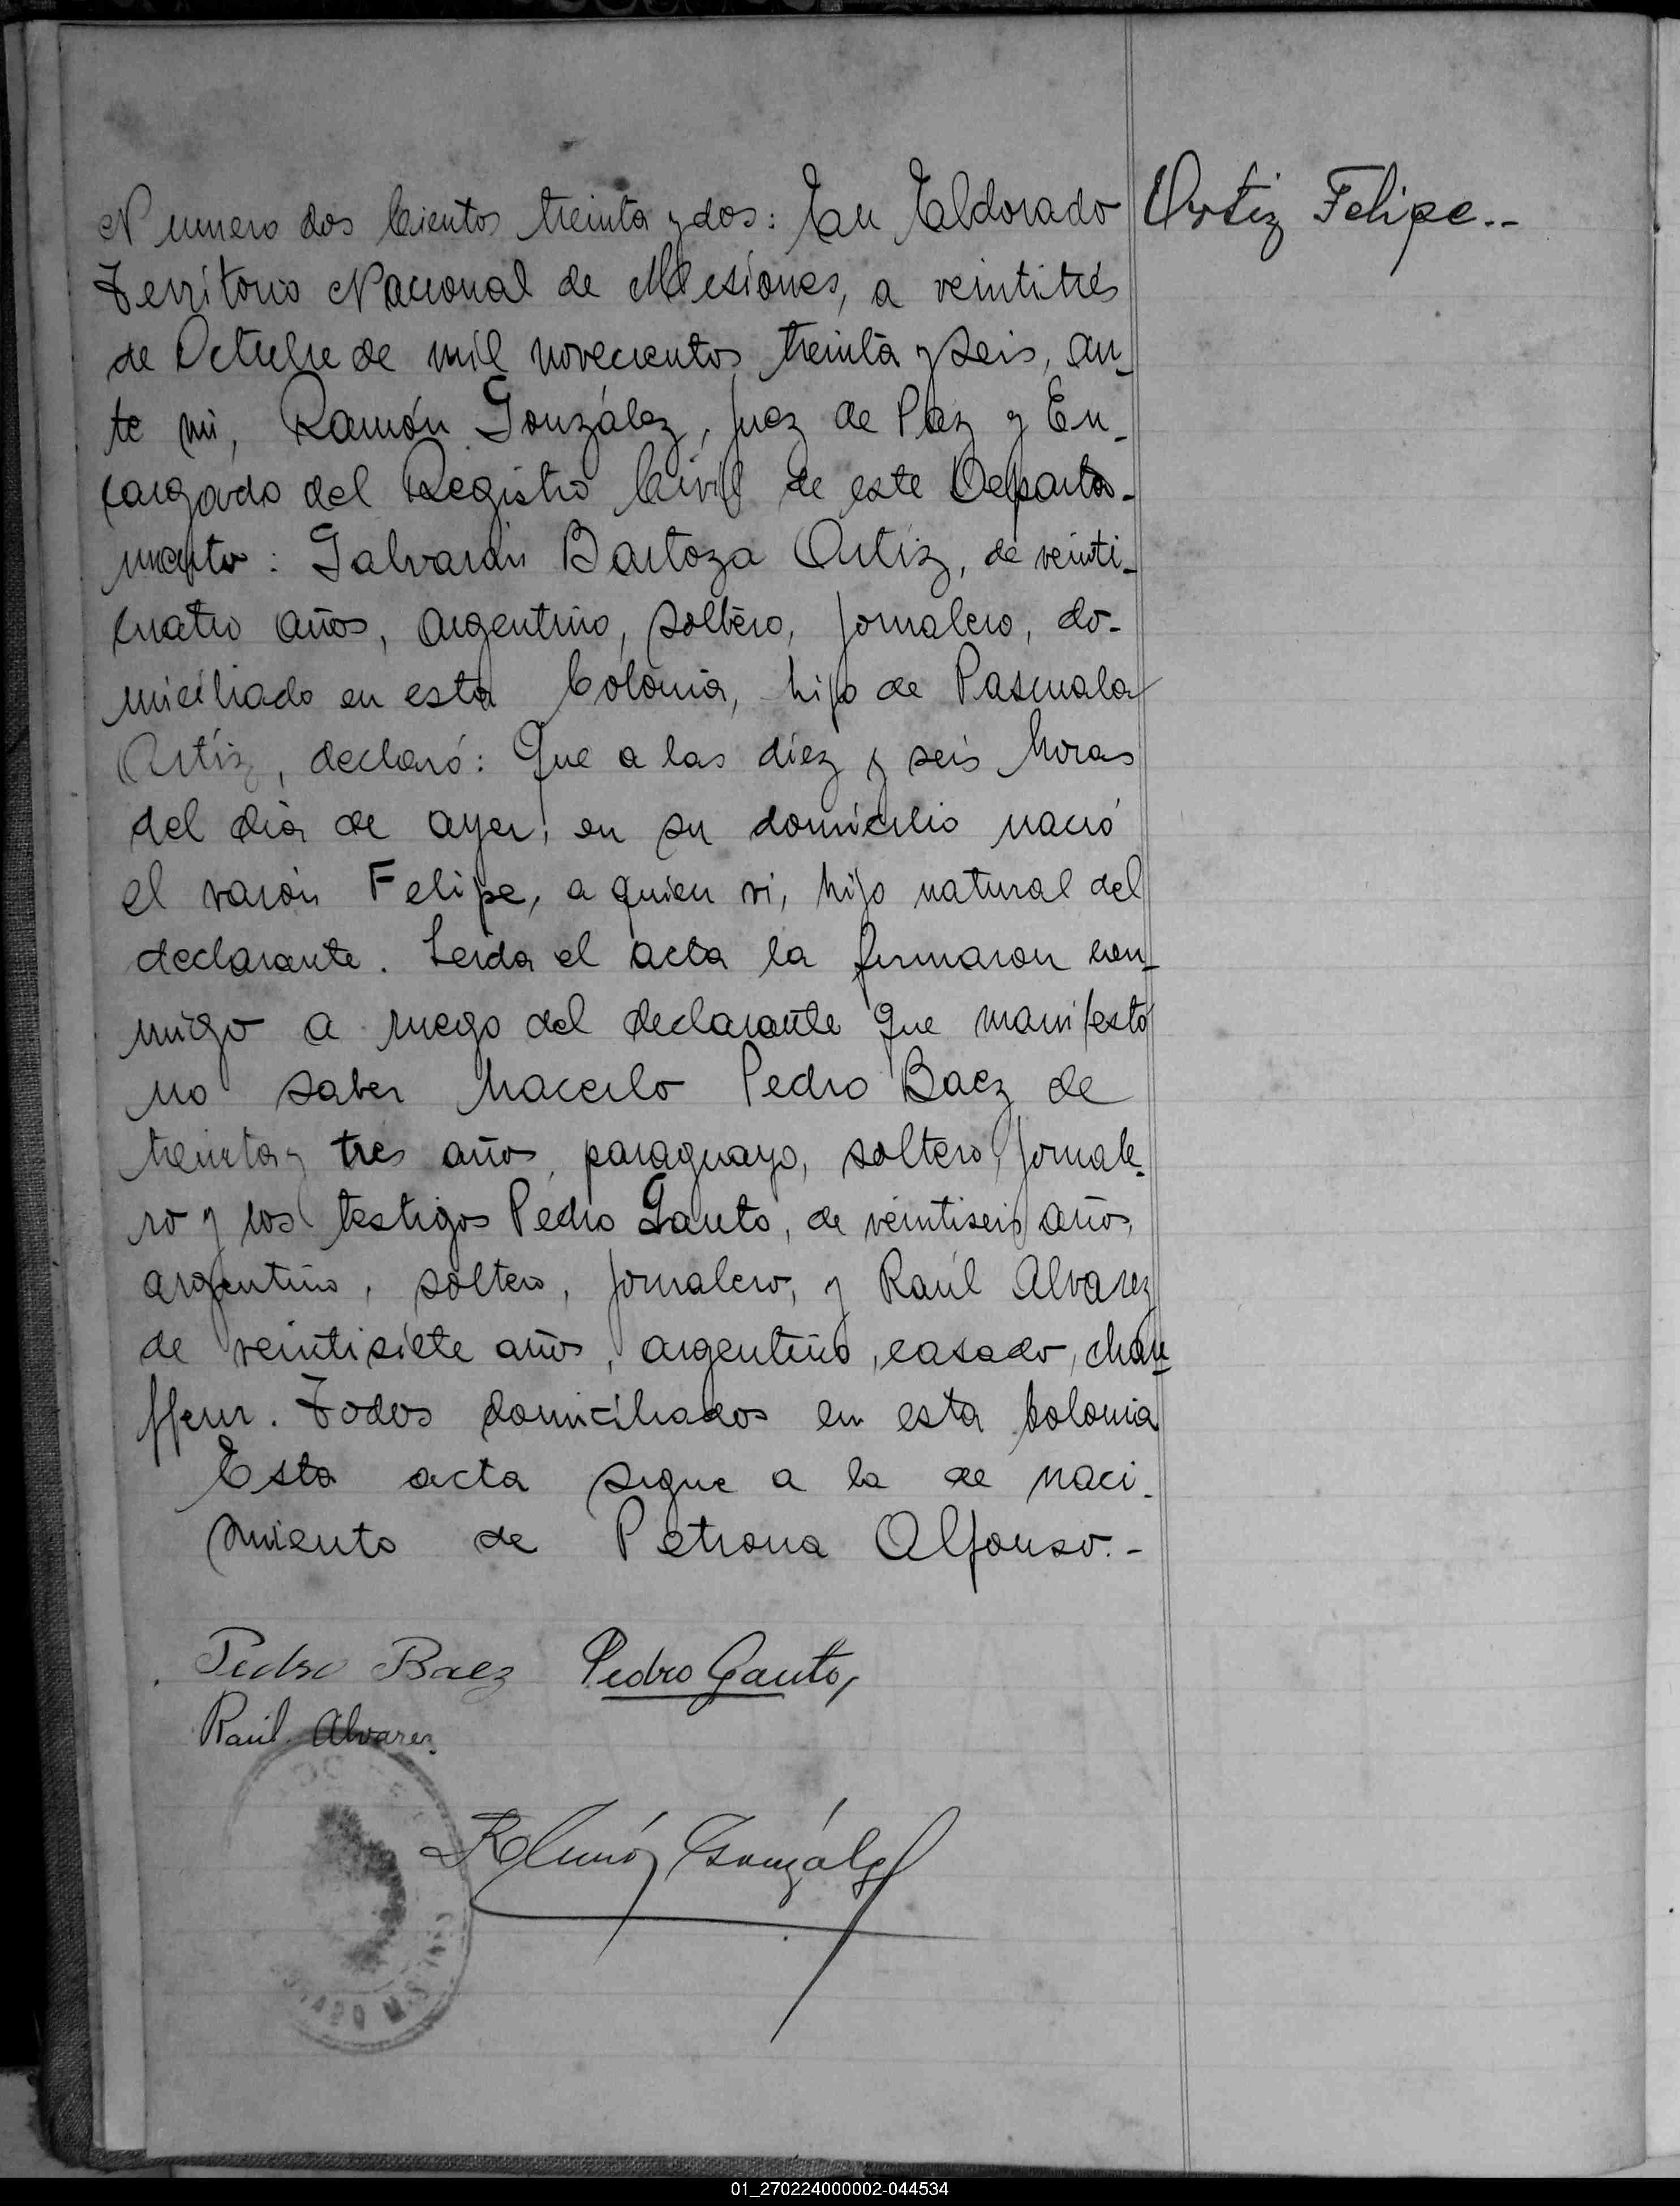 Numero dos Cientos treinta y dos: En Eldorado
Ortiz Felipe..
Territorio Nacional de Misiones, a veintitrés
de Octubre de mil novecientos treinta y seis, an_
te mi, Ramón González, Juez de Paz y En_
cargado del Registro Civil de este Departa_
mento: Galvarin Bartoza Ortiz, de veinti_
cuatro años, argentino, soltero, jornalero, do_
miciliado en esta Colonia, hijo de Pascuala
Ortíz, declaró: Que a las diez y seis horas
del día de ayer, en su domicilio nació
el varón Felipe, a quien vi, hijo natural del
declarante. Leida el acta la firmaron con_
migo a ruego del declarante que manifestó
no saber hacerlo Pedro Baez de
treinta y tres años, paraguayo, soltero, jornale_
ro y los testigos Pedro Gauto, de veintiseis años,
argentino, soltero, jornalero, y Raúl Alvarez
de veintisiete años, argentino, casado, chau_
ffeur. Todos domiciliados en esta Colonia
Esta acta sigue a la de naci_
miento de Petrona Alfonso.-
Pedro Baez Pedro Gauto
Raúl Alvarez
Ramón González
01_270224000002-044534